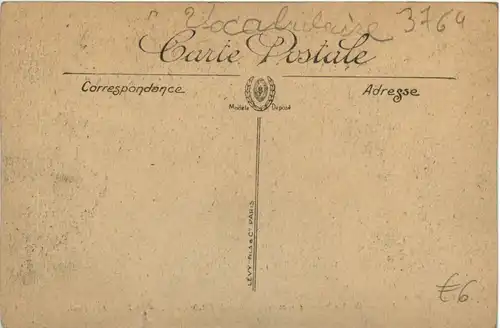 Vocabulaire 3764
Carte Postale
Correspondance
Adresse
Modèle Déposé
LÉVY FILS & Cie PARIS
€6